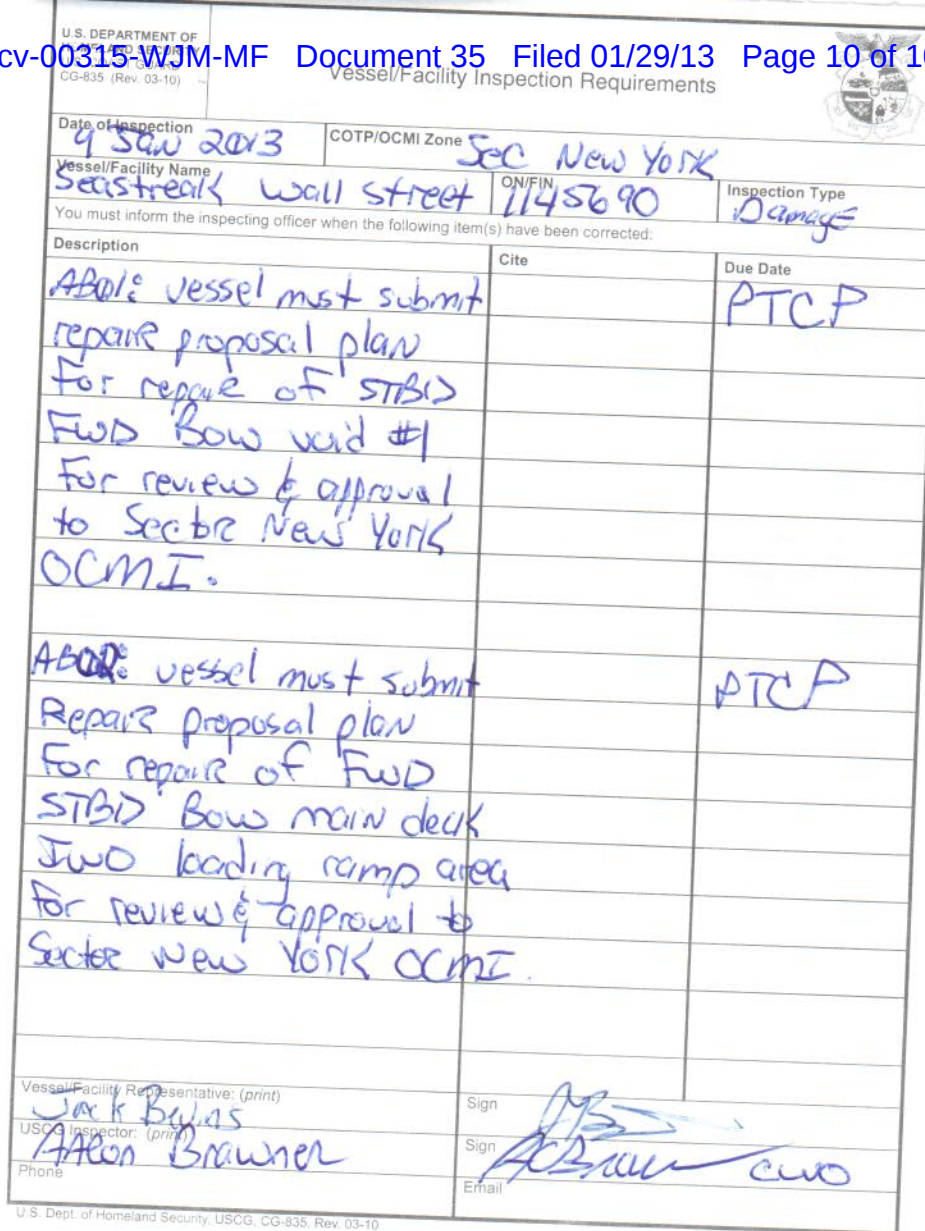 U.S. DEPARTMENT OF
HOMELAND SECURITY
cv-00315-WJM-MF Document 35 Filed 01/29/13 Page 10 of 10
U.S. COAST GUARD
CG-835 (Rev. 03-10)
Vessel/Facility Inspection Requirements
Date of Inspection
9 Jan 2013
COTP/OCMI Zone Sec New York
Vessel/Facility Name
Seastreak Wall Street
ON/FIN
1145690
Inspection Type
Damage
You must inform the inspecting officer when the following item(s) have been corrected:
Description Cite Due Date
AB01: vessel must submit PTCP
repair proposal plan
for repair of STBD
FWD Bow void #1
for review & approval
to Sector New York
OCMI.
AB02: vessel must submit PTCP
Repair proposal plan
for repair of FWD
STBD Bow main deck
IWO loading ramp area
for review & approval to
Sector New York OCMI.
Vessel/Facility Representative: (print) Sign
Jack
USCG Inspector: (print) Sign
Aaron Brawner CWO
Phone Email
U.S. Dept. of Homeland Security, USCG, CG-835, Rev. 03-10